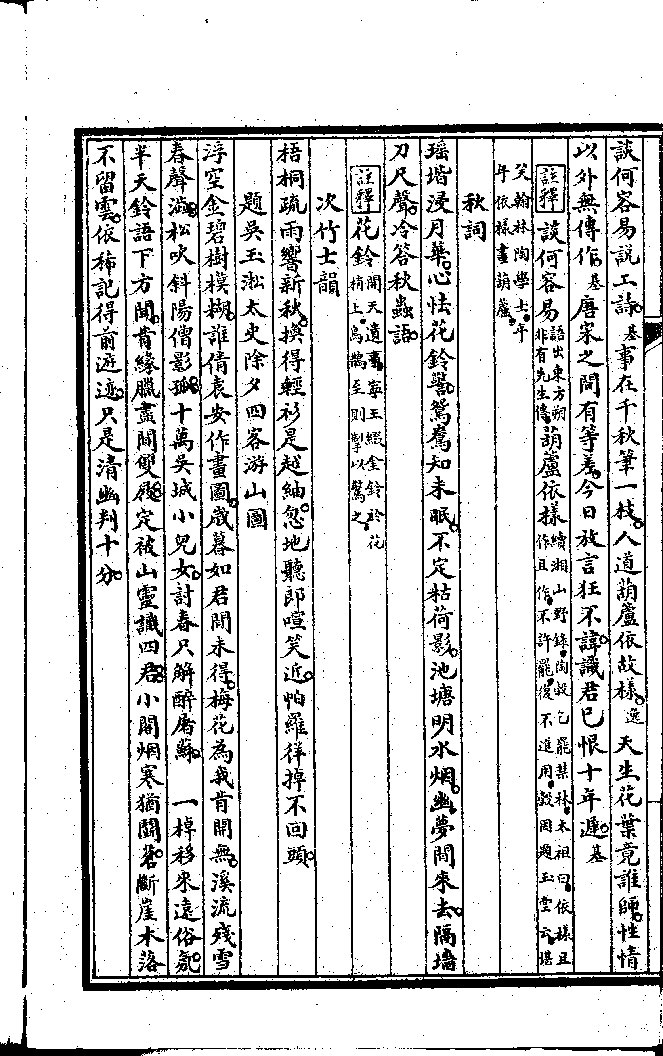 談何容易說工詩。基事在千秋筆一枝。人道葫蘆依故樣。逸天生花葉竟誰師。性情
以外無傳作。基唐宋之間有等差。今日放言狂不諱。識君已恨十年遲。基
註釋 談何容易語出東方朔非有先生傳。葫蘆依樣續湘山野錄。陶穀乞罷禁林。太祖曰。依樣且作且作。不許罷。復不進用。穀因題玉堂云。堪
笑翰林陶學士。年年依樣畫葫蘆。
秋詞
瑤堦浸月華。心怯花鈴警。鴛鴦知未眠。不定枯荷影。池塘明水烟。幽夢問來去。隔墻
刀尺聲。冷答秋蟲語。
註釋 花鈴開天遺事。寧王綴金鈴於花梢上。烏鵲至則掣以驚之。
次竹士韻
梧桐疏雨響新秋。換得輕衫是越紬。忽地聽郎喧笑近。怕羅徉掉不回頭。
題吳玉淞太史除夕四客游山圖
浮空金碧樹模糊。誰倩袁安作畫圖。歲暮如君閒未得。梅花為我肯開無。溪流殘雪
春聲滿。松吹斜陽僧影孤。十萬吳城小兒女。討春只解醉屠蘇。 一棹移來遠俗氛。
半天鈴語下方聞。肯緣臘盡閒雙屐。定被山靈識四君。小閣烟寒猶鬭茗。斷崖木落
不留雲。依稀記得前遊迹。只是清幽判十分。